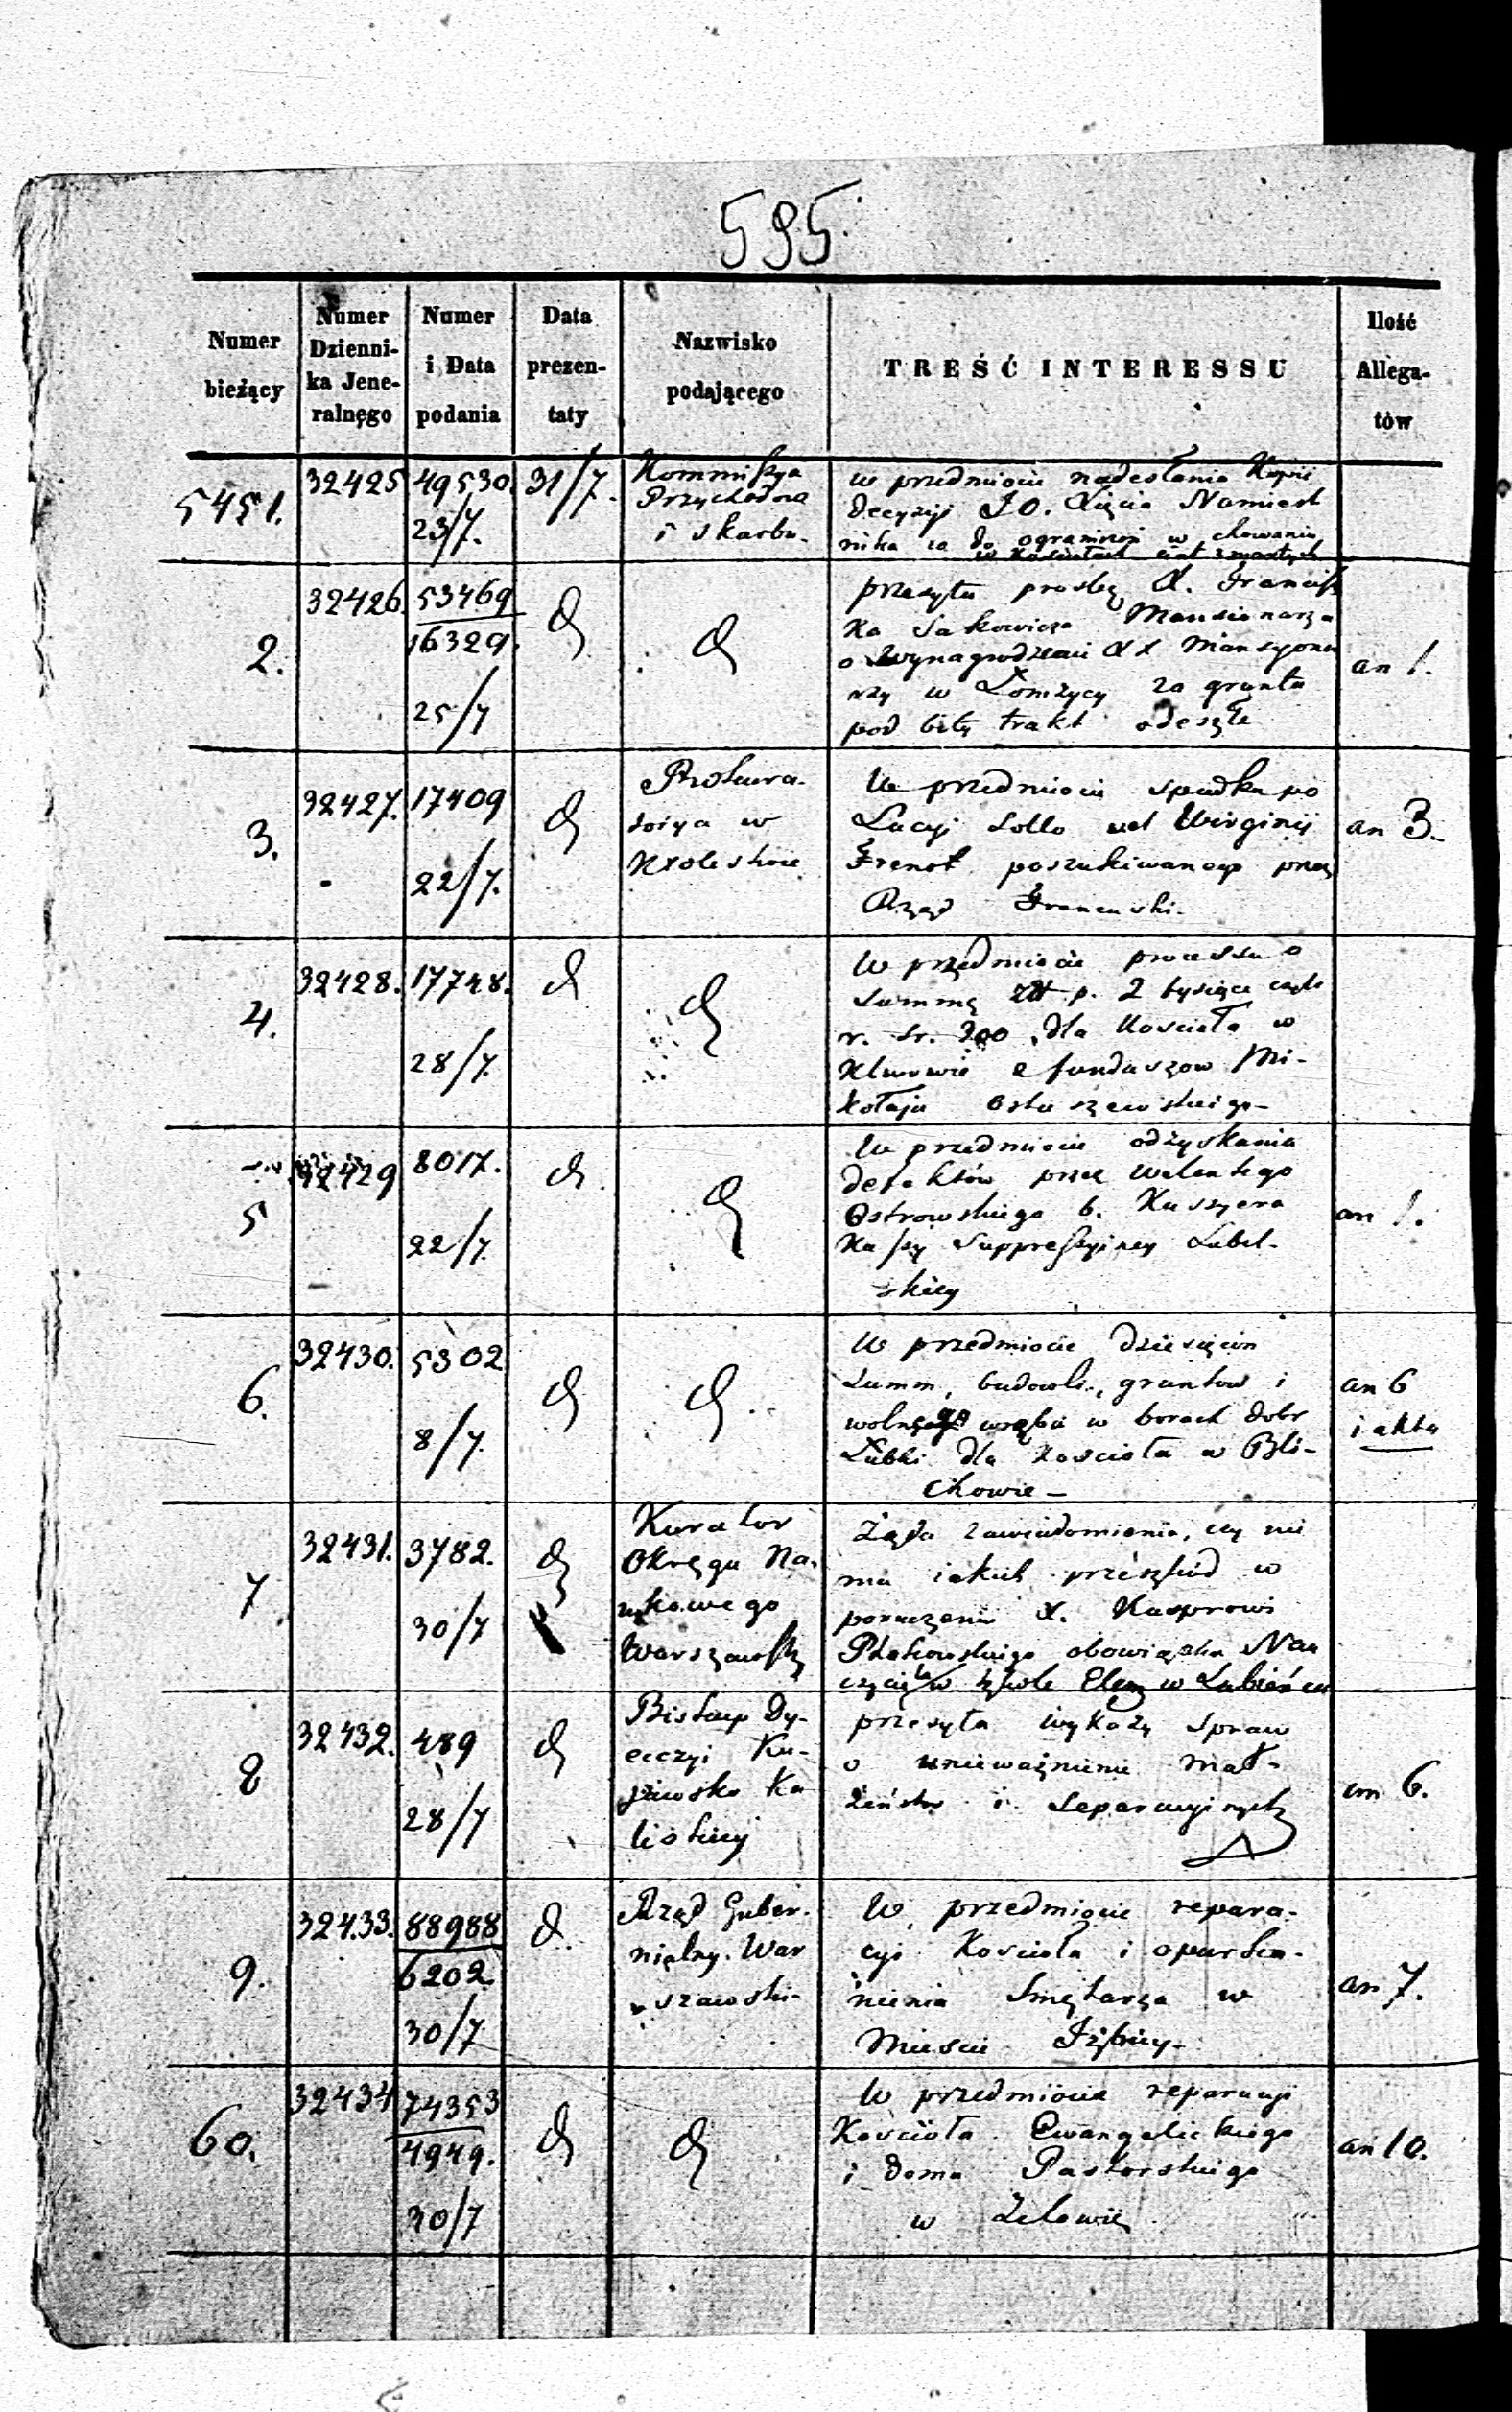 595
Numer bieżący
Numer Dzienni-ka Jene-ralnego
Numer i Data podania
Data prezen-taty
Nazwisko podającego
TREŚĆ INTERESSU
Ilość Allega-tów
5451.
32425
49530.
23/7.
31/7.
Kommissya
Przychodow
i Skarbu.
w przedmiocie nadesłania Kopii
decyzyi J.O. Xięcia Namiest
nika co do ograniczeń w chowaniu
w Kościołach ciał zmarłych
2.
32426
53469
16329.
25/7
d
d
przesyła prośbę X. Francisz
ka Sakowicza Mansionarza
o wynagrodzenie XX Mansyona
rzy w Łomżycy za grunta
pod bity trakt odeszłe
an 1.
3.
32427.
17409
22/7.
d
Prokura-
torya w
Królestwie
W przedmiocie spadku po
Lucyi Lollo vel Wirginij
Frenot poszukiwanego przez
Rząd Francuski.
an 3.
4.
32428.
17748.
28/7.
d
d
W przedmiocie processu o
Summę Złt p. 2 tysiące czyli
r. sr. 300 dla Kościoła w
Klwowie z funduszow Mi-
kołaja
5
32429
8017.
22/7.
d
d
W przedmiocie odzyskania
defektów przez Walentego
Ostrowskiego b. Kassyera
Kassy Suppressyiney Lubel-
skiey
an 1.
6.
32430.
5302
8/7.
d
d
W przedmiocie dziesięcin
Summ, budowli, gruntow i
wolnego wrębu w borach dobr
Łubki dla Kościoła w Bli-
chowie –
an 6
i akta
7.
32431.
3782.
30/7
d
Kurator
Okręgu Na-
ukowego
Warszawsk
Żąda zawiadomienia, czy nie
ma iakich przeszkód w
poruczeniu X. Kasprowi
obowiązku Nau
czyciela w szkole Elem w
8
32432.
489
28/7
d
Biskup Dy-
ecczyi Ku-
jawsko Ka
liskiey
przesyła wykazy spraw
o unieważnienie mał-
żeństw i Separacyinych
an 6.
9.
32433.
88988
6202.
30/7
d.
Rząd Guber-
nialny War
szawski
W przedmiocie repara-
cyi Kościoła i oparka-
nienia Smętarza w
Mieście Iżbicy.
an 7.
60.
32434
74353
4949.
30/7
d
d
W przedmiocie reparacyi
Kościoła Ewangelickiego
i domu Pastorskiego
w Zelowie
an 10.